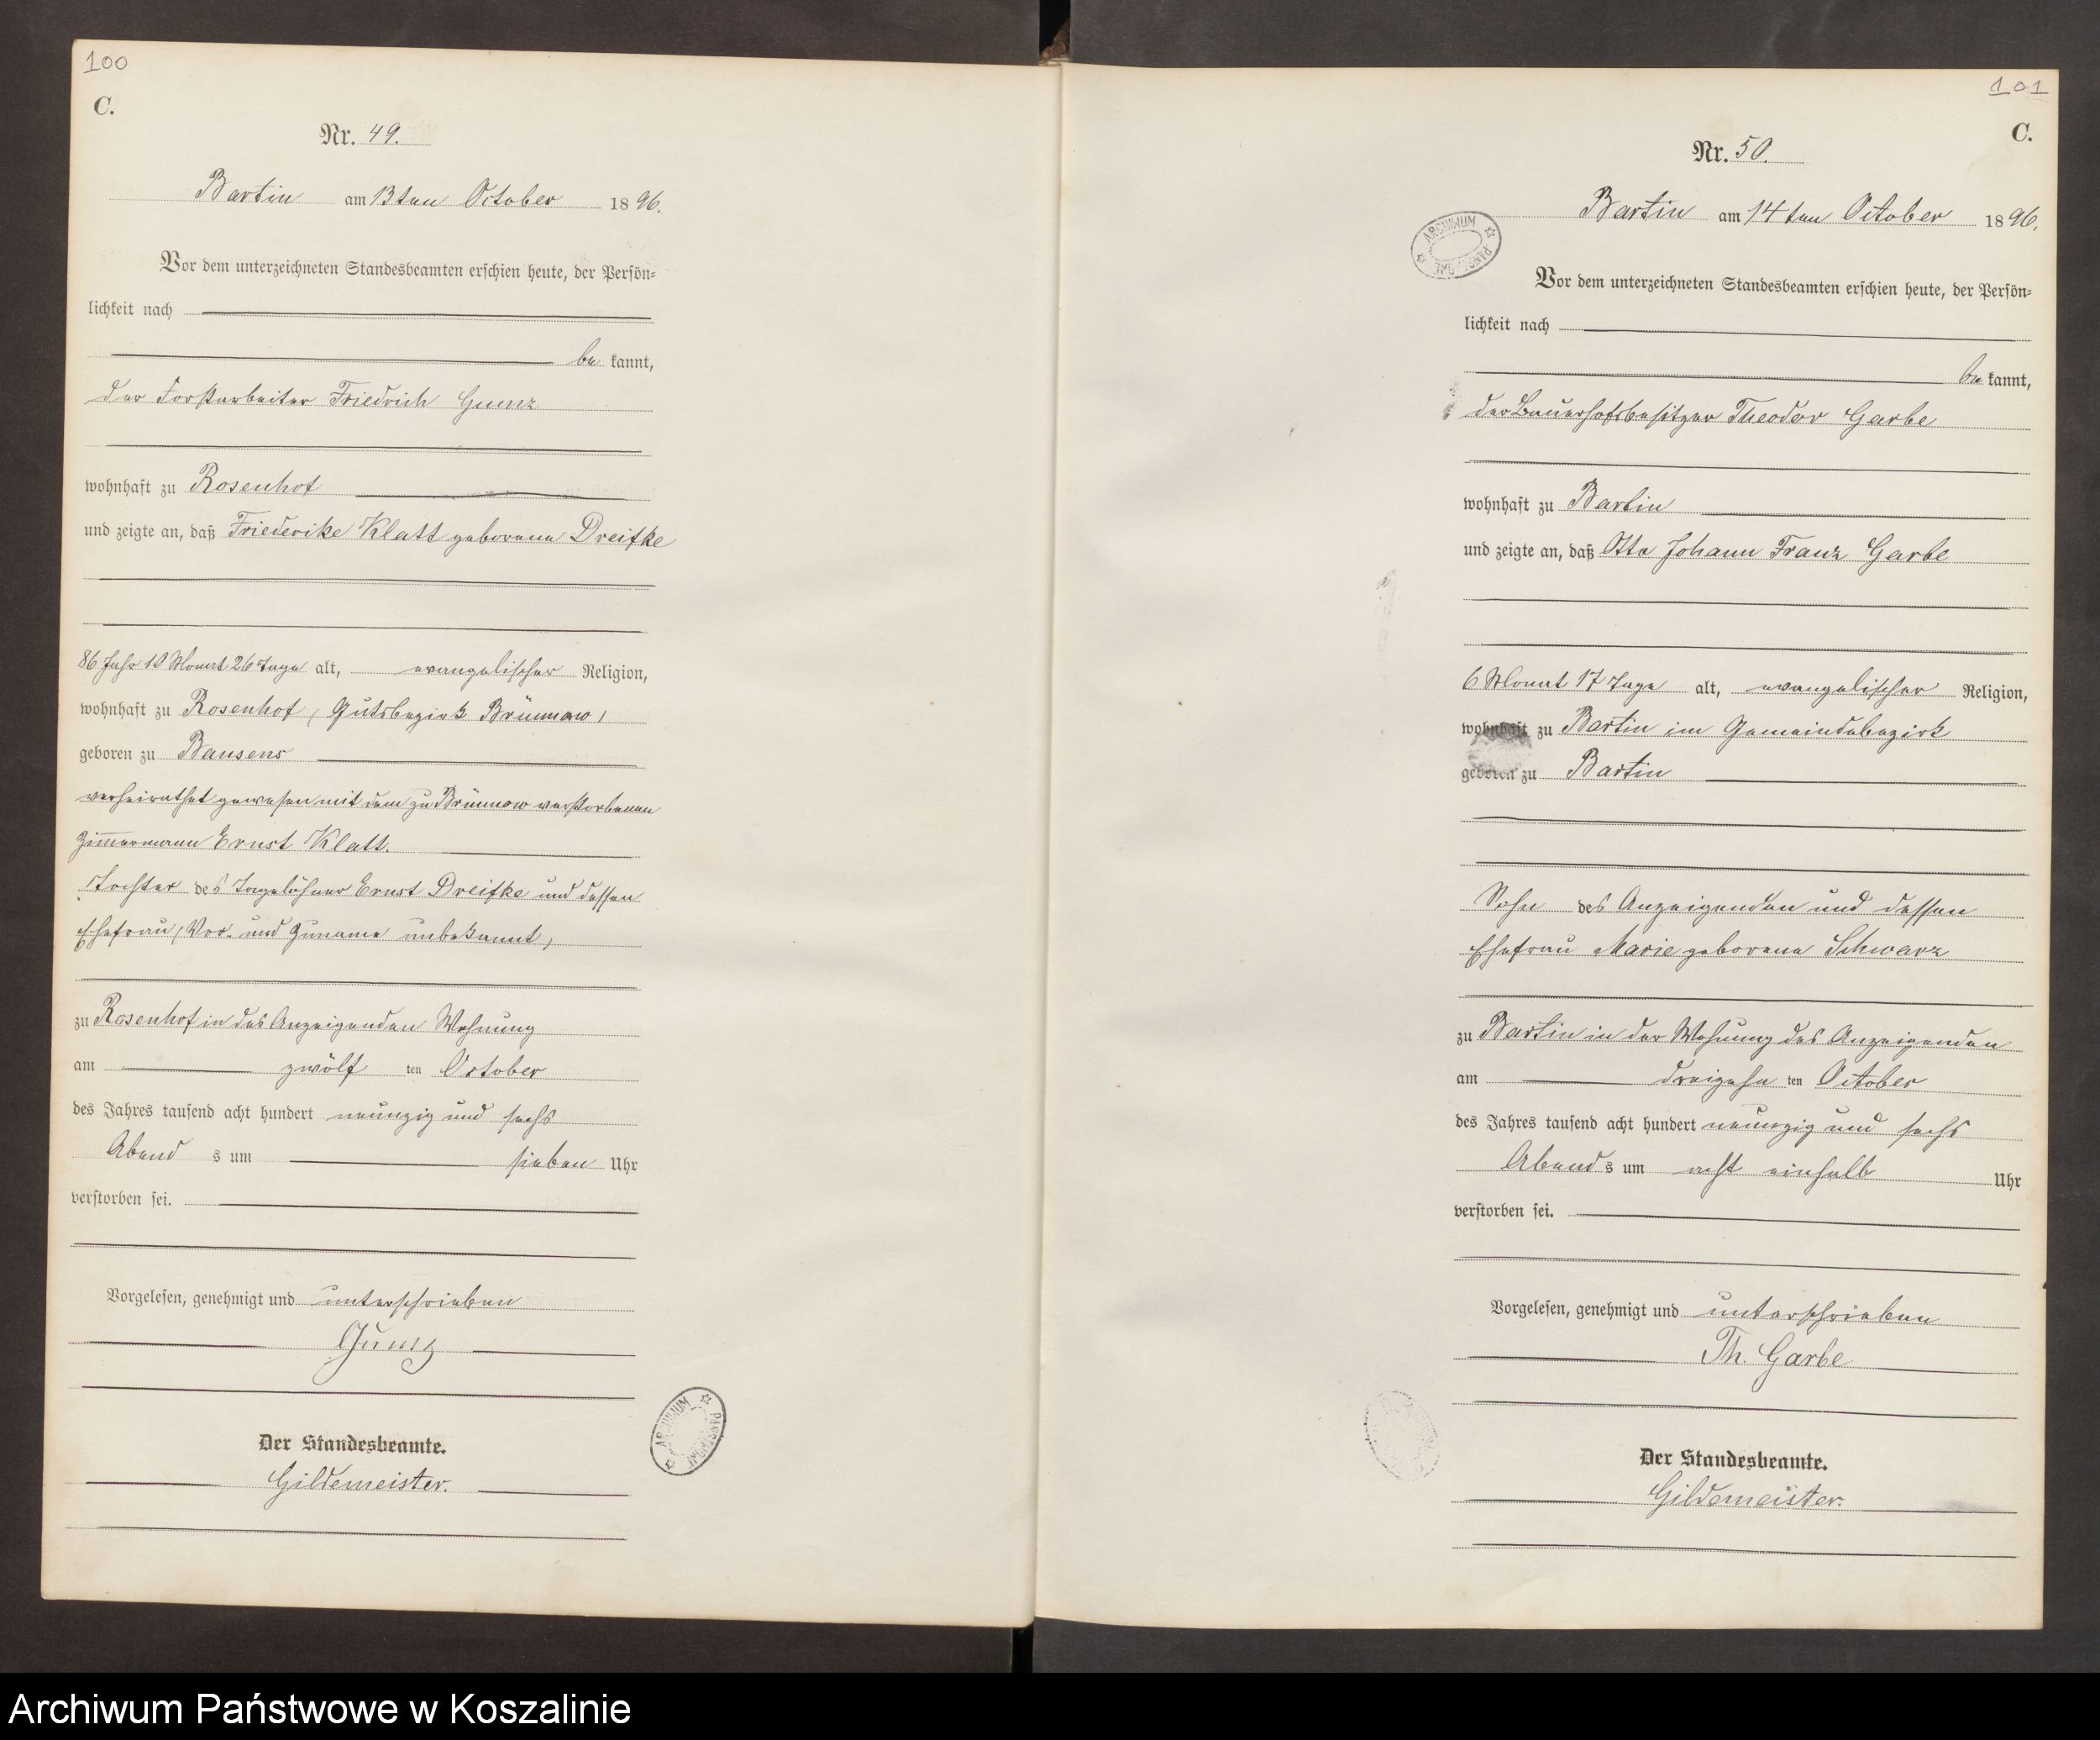 100
C.
Nr. 49.
Bartin am 13ten October 1896.
Vor dem unterzeichneten Standesbeamten erschien heute, der Persön-
lichkeit nach
be kannt,
der Forstarbeiter Friedrich Gumz
wohnhaft zu Rosenhof
und zeigte an, daß Friederike Klatt geborene Dreifke
86 Jahr 10 Monat 26 Tage alt, evangelischer Religion,
wohnhaft zu Rosenhof (Gutsbezirk Brünnow)
geboren zu Bansens
verheirathet gewesen mit dem zu Brünnow verstorbenen
Zimmermann Ernst Klatt.
Tochter des Tagelöhner Ernst Dreifke und dessen
Ehefrau (Vor- und Zuname unbekannt)
zu Rosenhof in des Anzeigenden Wohnung
am zwölf ten October
des Jahres tausend acht hundert neunzig und sechs
Abend s um sieben Uhr
verstorben sei.
Vorgelesen, genehmigt und unterschrieben
Gumz
Der Standesbeamte.
Gildemeister.
ARCHIWUM PAŃSTWOWE
101
C.
Nr. 50.
Bartin am 14ten October 1896.
ARCHIWUM PAŃSTWOWE
Vor dem unterzeichneten Standesbeamten erschien heute, der Persön-
lichkeit nach
be kannt,
der Bauerhofsbesitzer Theodor Garbe
wohnhaft zu Bartin
und zeigte an, daß Otto Johann Franz Garbe
6 Monat 17 Tage alt, evangelischer Religion,
wohnhaft zu Bartin im Gemeindebezirk
geboren zu Bartin
Sohn des Anzeigenden und dessen
Ehefrau Marie geborene Schwarz
zu Bartin in der Wohnung des Anzeigenden
am dreizehn ten October
des Jahres tausend acht hundert neunzig und sechs
Abend s um acht einhalb Uhr
verstorben sei.
Vorgelesen, genehmigt und unterschrieben
Th. Garbe
Der Standesbeamte.
Gildemeister.
Archiwum Państwowe w Koszalinie